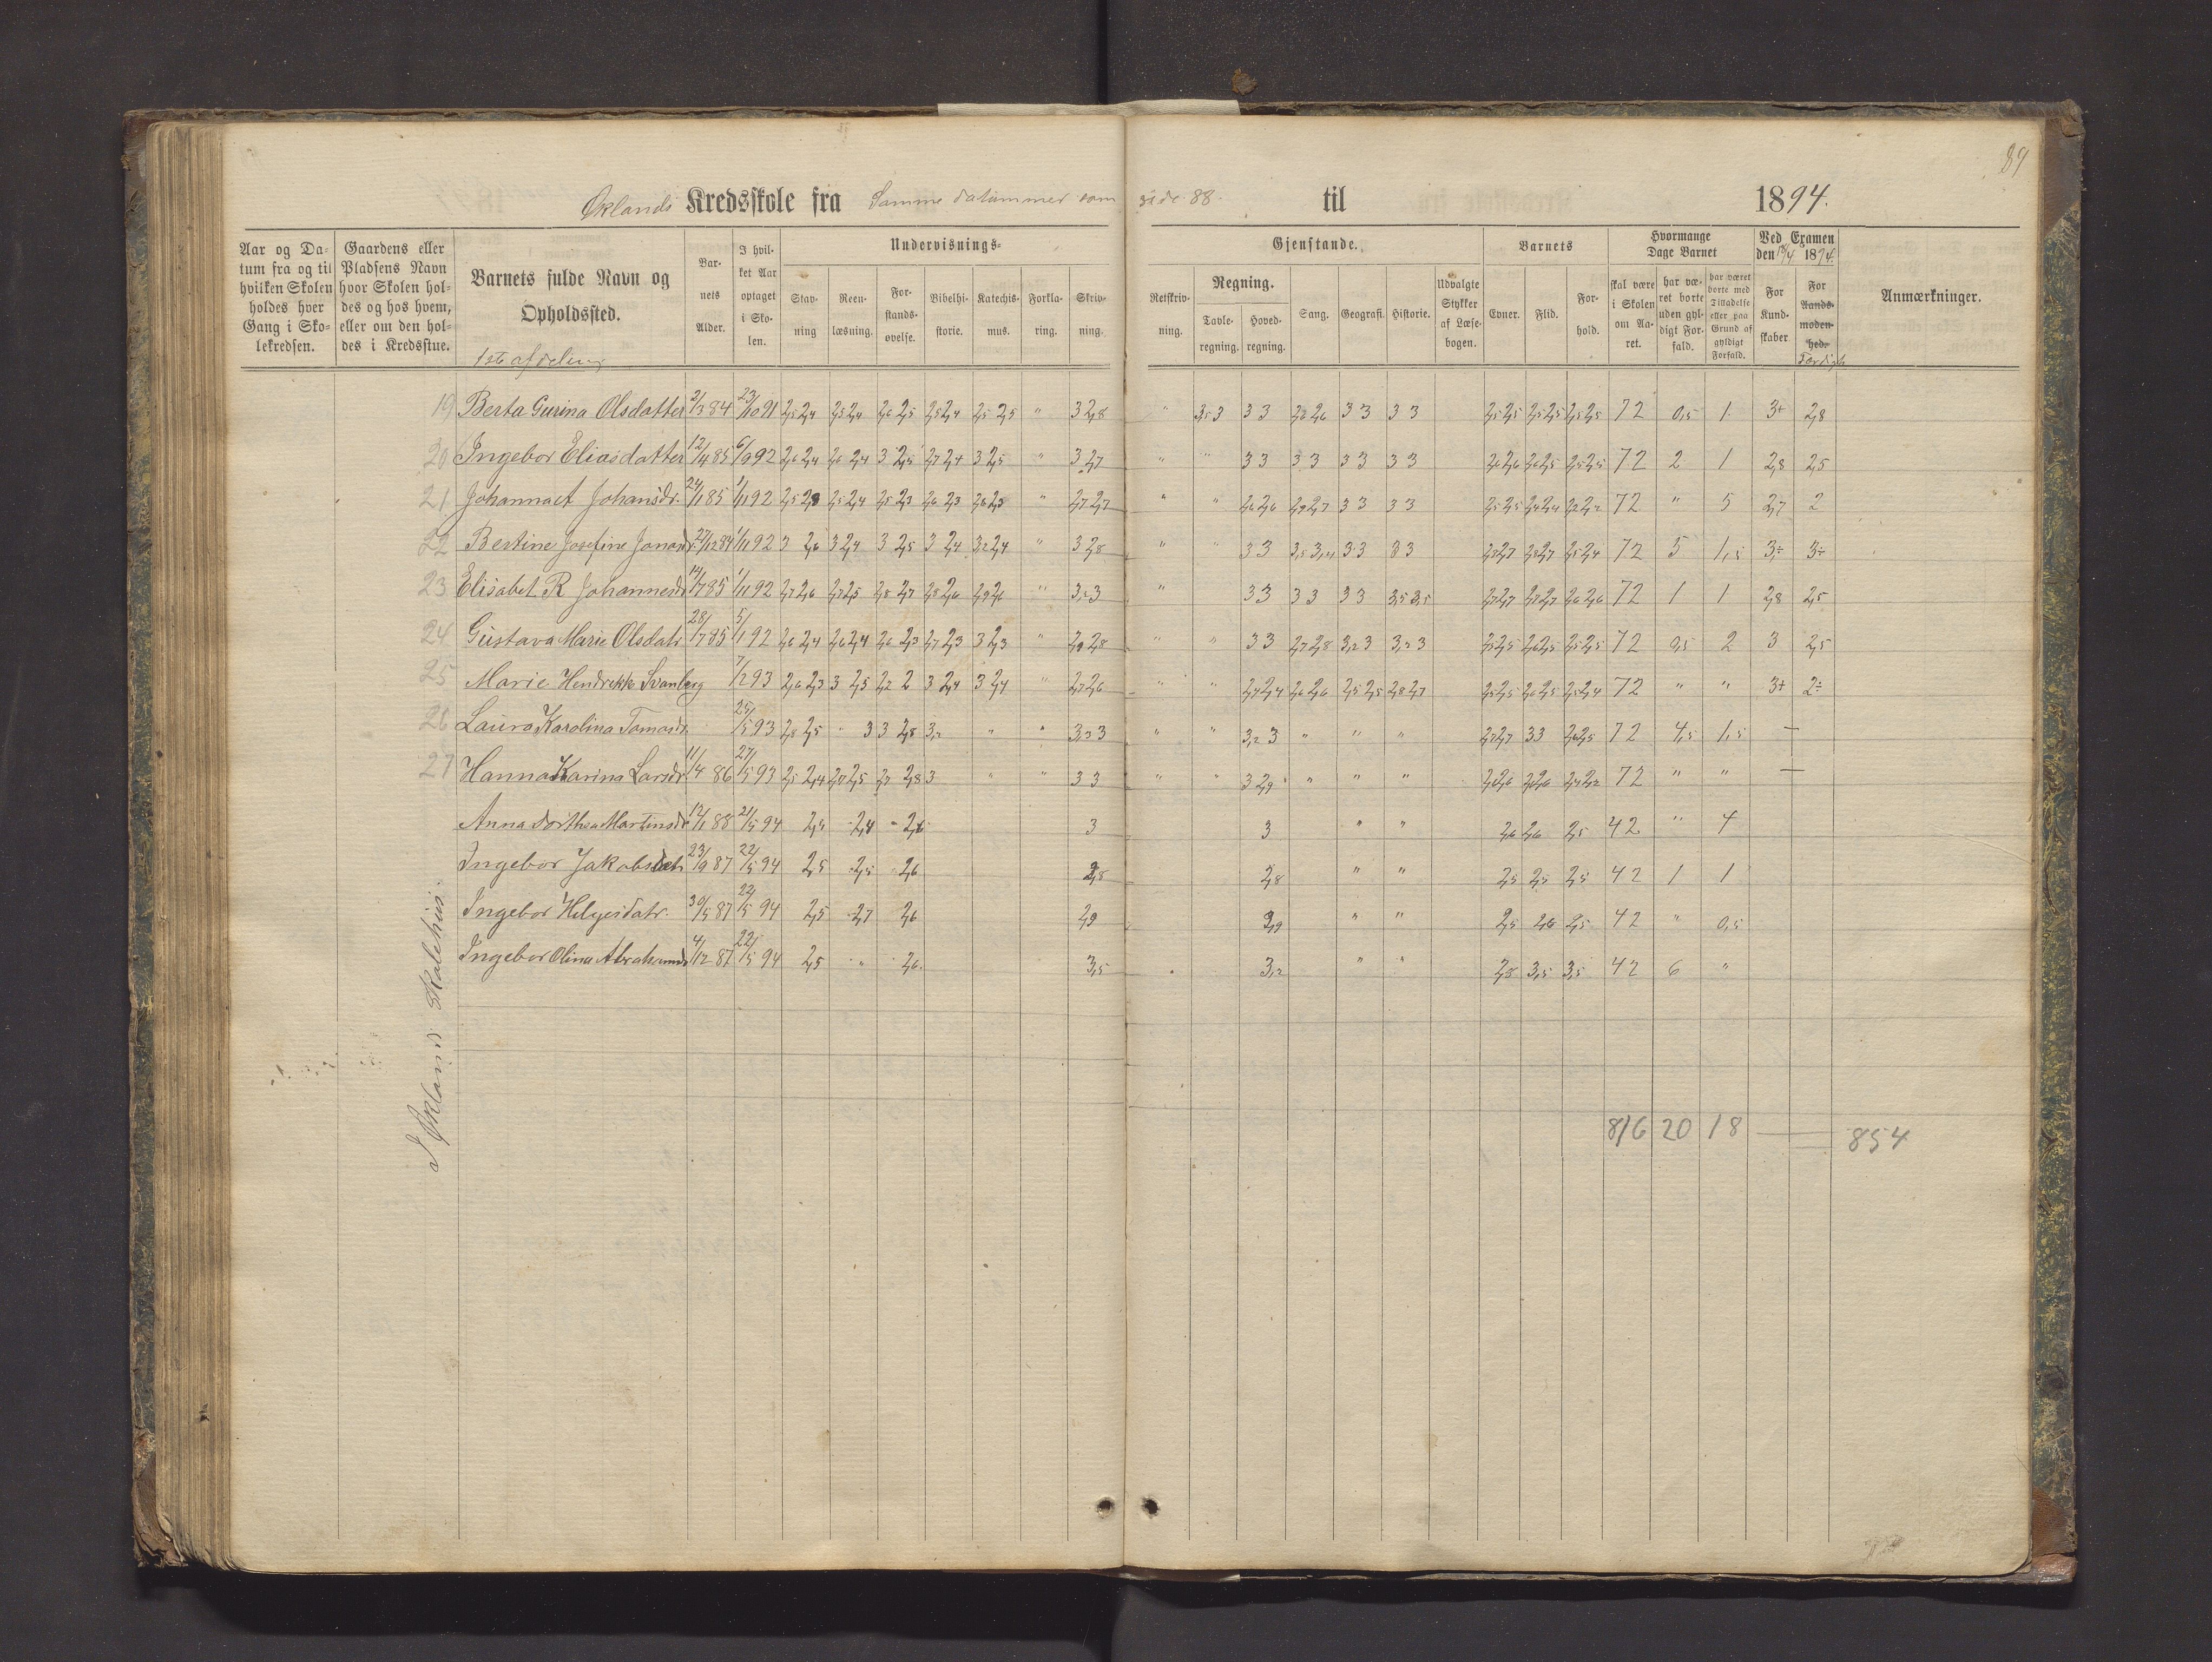 89
Øklands Kredsskole fra Samme datummer som side 88. til 1894.
Aar og Datum fra og til hvilken Skolen holdes hver Gang i Skolekredsen.
Gaardens eller Pladsens Navn hvor Skolen holdes og hos hvem, eller om den holdes i Kredsstue.
Barnets fulde Navn og Opholdssted.
Barnets Alder.
I hvilket Aar optaget i Skolen.
Undervisnings-
Stavning
Reenlæsning.
Forstandsøvelse.
Bibelhistorie.
Katechismus.
Forklaring.
Skrivning.
Gjenstande.
Retskrivning.
Regning.
Tavleregning.
Hovedregning.
Sang.
Geografi.
Historie.
Udvalgte Stykker af Læsebogen.
Barnets
Evner.
Flid.
Forhold.
Hvormange Dage Barnet
skal være i Skolen om Aaret.
har været borte uden gyldigt Forfald.
har været borte med Tilladelse eller paa Grund af gyldigt Forfald.
Ved Examen den 18/4 1894.
For Kundskaber
For Aandsmodenhed.
Anmærkninger.
1ste afdeling
19 Berta Gurina Olsdatter 2/3 84 23/10 91 2,5 2,4 2,5 2,4 2,6 2,5 2,5 2,4 2,5 2,5 " 3 2,8 " 3,5 3 3 3 2,6 2,6 3 3 3 3 2,5 2,5 2,5 2,5 2,5 2,5 72 0,5 1 3+ 2,8
20 Ingebor Eliasdatter 12/4 85 6/9 92 2,6 2,4 2,6 2,4 3 2,5 2,7 2,4 3 2,5 " 3 2,7 " " 3 3 3 3 3 3 3 3 2,6 2,6 2,6 2,5 2,5 2,5 72 2 1 2,8 2,5
21 Johannaet Johansdr. 24/1 85 1/11 92 " 2,7 2,7 " " 2,6 2,6 2,9 2,7 3 3 3 3 72 " 5 2,7 2
22 Bertine Josefine Jonasd. 27/12 84 1/11 92 3 2,6 3 2,4 3 2,5 3 2,4 3,2 2,4 " 3 2,8 " " 3 3 3 3 72 5 1,5 3÷ 3÷
23 Elisabet R Johannesd 14/7 85 1/11 92 2,7 2,6 2,7 2,5 2,8 2,7 2,8 2,6 2,9 2,6 " 3,2 3 " 3 3 3 3 3 3 3,5 3,5 2,7 2,7 2,7 2,7 2,6 2,6 72 1 1 2,8 2,5
24 Gustava Marie Olsdatr 28/7 85 5/1 92 2,6 2,4 2,6 2,4 2,6 2,3 2,7 2,3 3 2,3 " 2,9 2,8 " " 3 3 2,7 2,8 3,2 3 3,2 3 72 0,5 2 3 2,5
25 Marie Hendrikke Svanberg 7/2 93 2,6 2,3 3 2,5 2,2 2 3 2,4 3 2,4 " 2,7 2,6 " " 2,4 2,4 2,6 2,6 2,5 2,5 2,8 2,7 72 " " 3+ 2÷
26 Laura Karolina Tomasd. 25/5 93 2,8 2,5 " 3 3 2,8 3,2 " " 3,3 3 " " 3,2 3 " " " 2,7 2,7 3 3 72 4,5 1,5 —
27 Hanna Karina Larsdr 11/4 86 27/5 93 2,5 2,4 2,7 2,5 2,7 2,8 3 " " 3 3 " " 3 2,9 " " " 2,6 2,6 2,6 2,6 72 " " —
Anna Dorthea Martinsd 12/1 88 21/5 94 2,5 2,4 2,6 3 3 " " 2,6 2,6 2,5 42 " 4
Ingebor Jakobsdatr 23/9 87 22/5 94 2,5 2,5 2,6 2,8 2,8 " " 2,5 2,5 2,5 42 1 1
Ingebor Helgesdatr. 30/5 87 22/5 94 2,5 2,7 2,6 2,9 2,9 " " 2,5 2,6 2,5 42 " 0,5
Ingebor Olina Abrahamsd 4/12 87 22/5 94 2,5 " 2,6 3,5 3,2 " " 2,8 3,5 3,5 42 6 "
I Økland Skolehus.
816 20 18 — 854